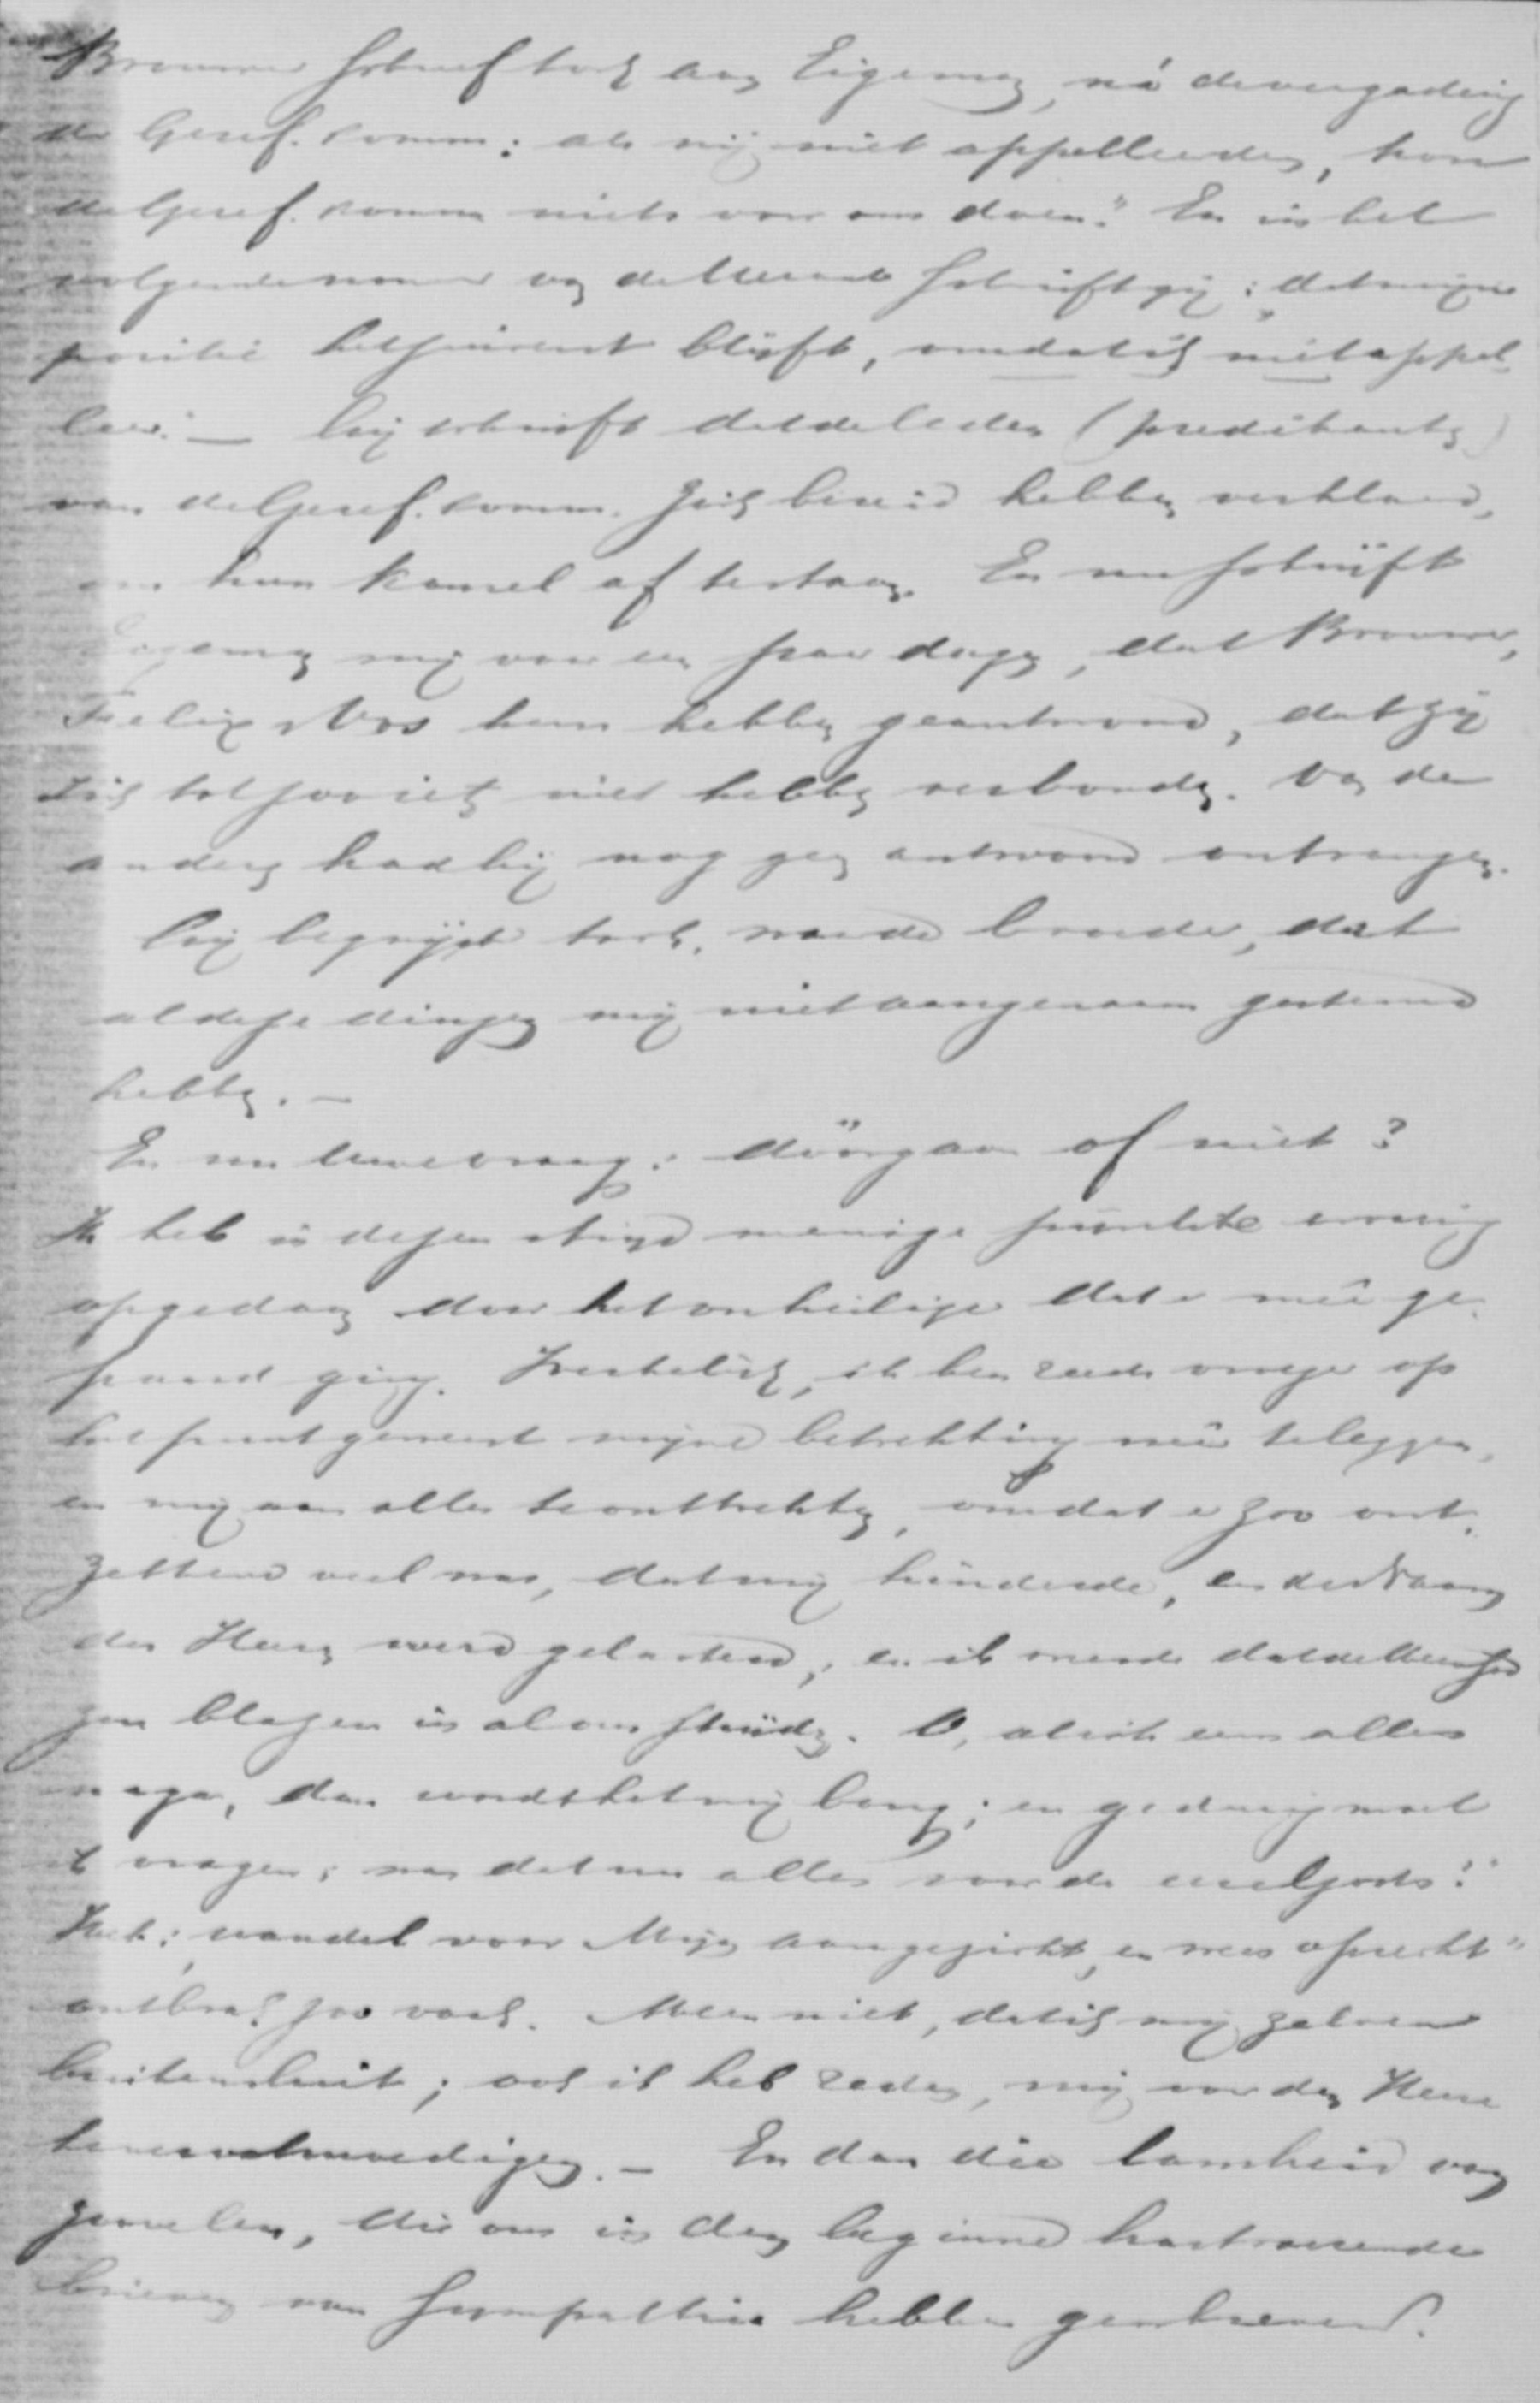 Brouwer schreef toch aan Eigeman, ná de vergadering
der Geref. comm: als wij niet appelleerden, kon
de Geref. comm niets voor ons doen." En in het
volgende nommer van de Heraut schrijft gij: „dat mijne
positie het zuiverst blijft, omdat ik niet appel-
leer." — Gij schrijft dat de leden (predikanten)
van de Geref. comm. zich bereid hebben verklaard,
om hun kansel af te staan. En nu schrijft
Eigeman mij voor een paar dagen, dat Brouwer,
Felix, Vos hem hebben geantwoord, dat zij
zich tot zoo iets niet hebben verbonden. Van de
anderen had hij nog geen antwoord ontvangen.
Gij begrijpt toch, waarde broeder, dat
al deze dingen mij niet aangenaam gestemd
hebben. —
En nu de vraag: dóórgaan of niet?
Ik heb in dezen strijd menige pijnlijke ervaring
opgedaan door het onheilige dat er meê ge-
paard ging. Sterkelijk, ik ben reeds vroeger op
het punt geweest mijne betrekking neêr te leggen,
en mij aan alles te onttrekken, omdat er zoo ont-
zettend veel was, dat mij hinderde, en de Naam
des Heeren werd gelasterd, en ik meende dat de Heere
zou blazen in al ons strijden. O, als ik eens alles
naga, dan wordt het mij bang; en gedurig moet
ik vragen: was dat nu alles voor de eere Gods?
Het: „wandel voor Mijn aangezicht, en wees oprecht"
ontbrak zoo vaak. Meen niet, dat ik mij zelven
buitensluit; ook ik heb reden, mij voor den Heere
te verootmoedigen. — En dan die lamheid van
zoovelen, die ons in den beginne hartroerende
brieven van sympathie hebben geschreven.